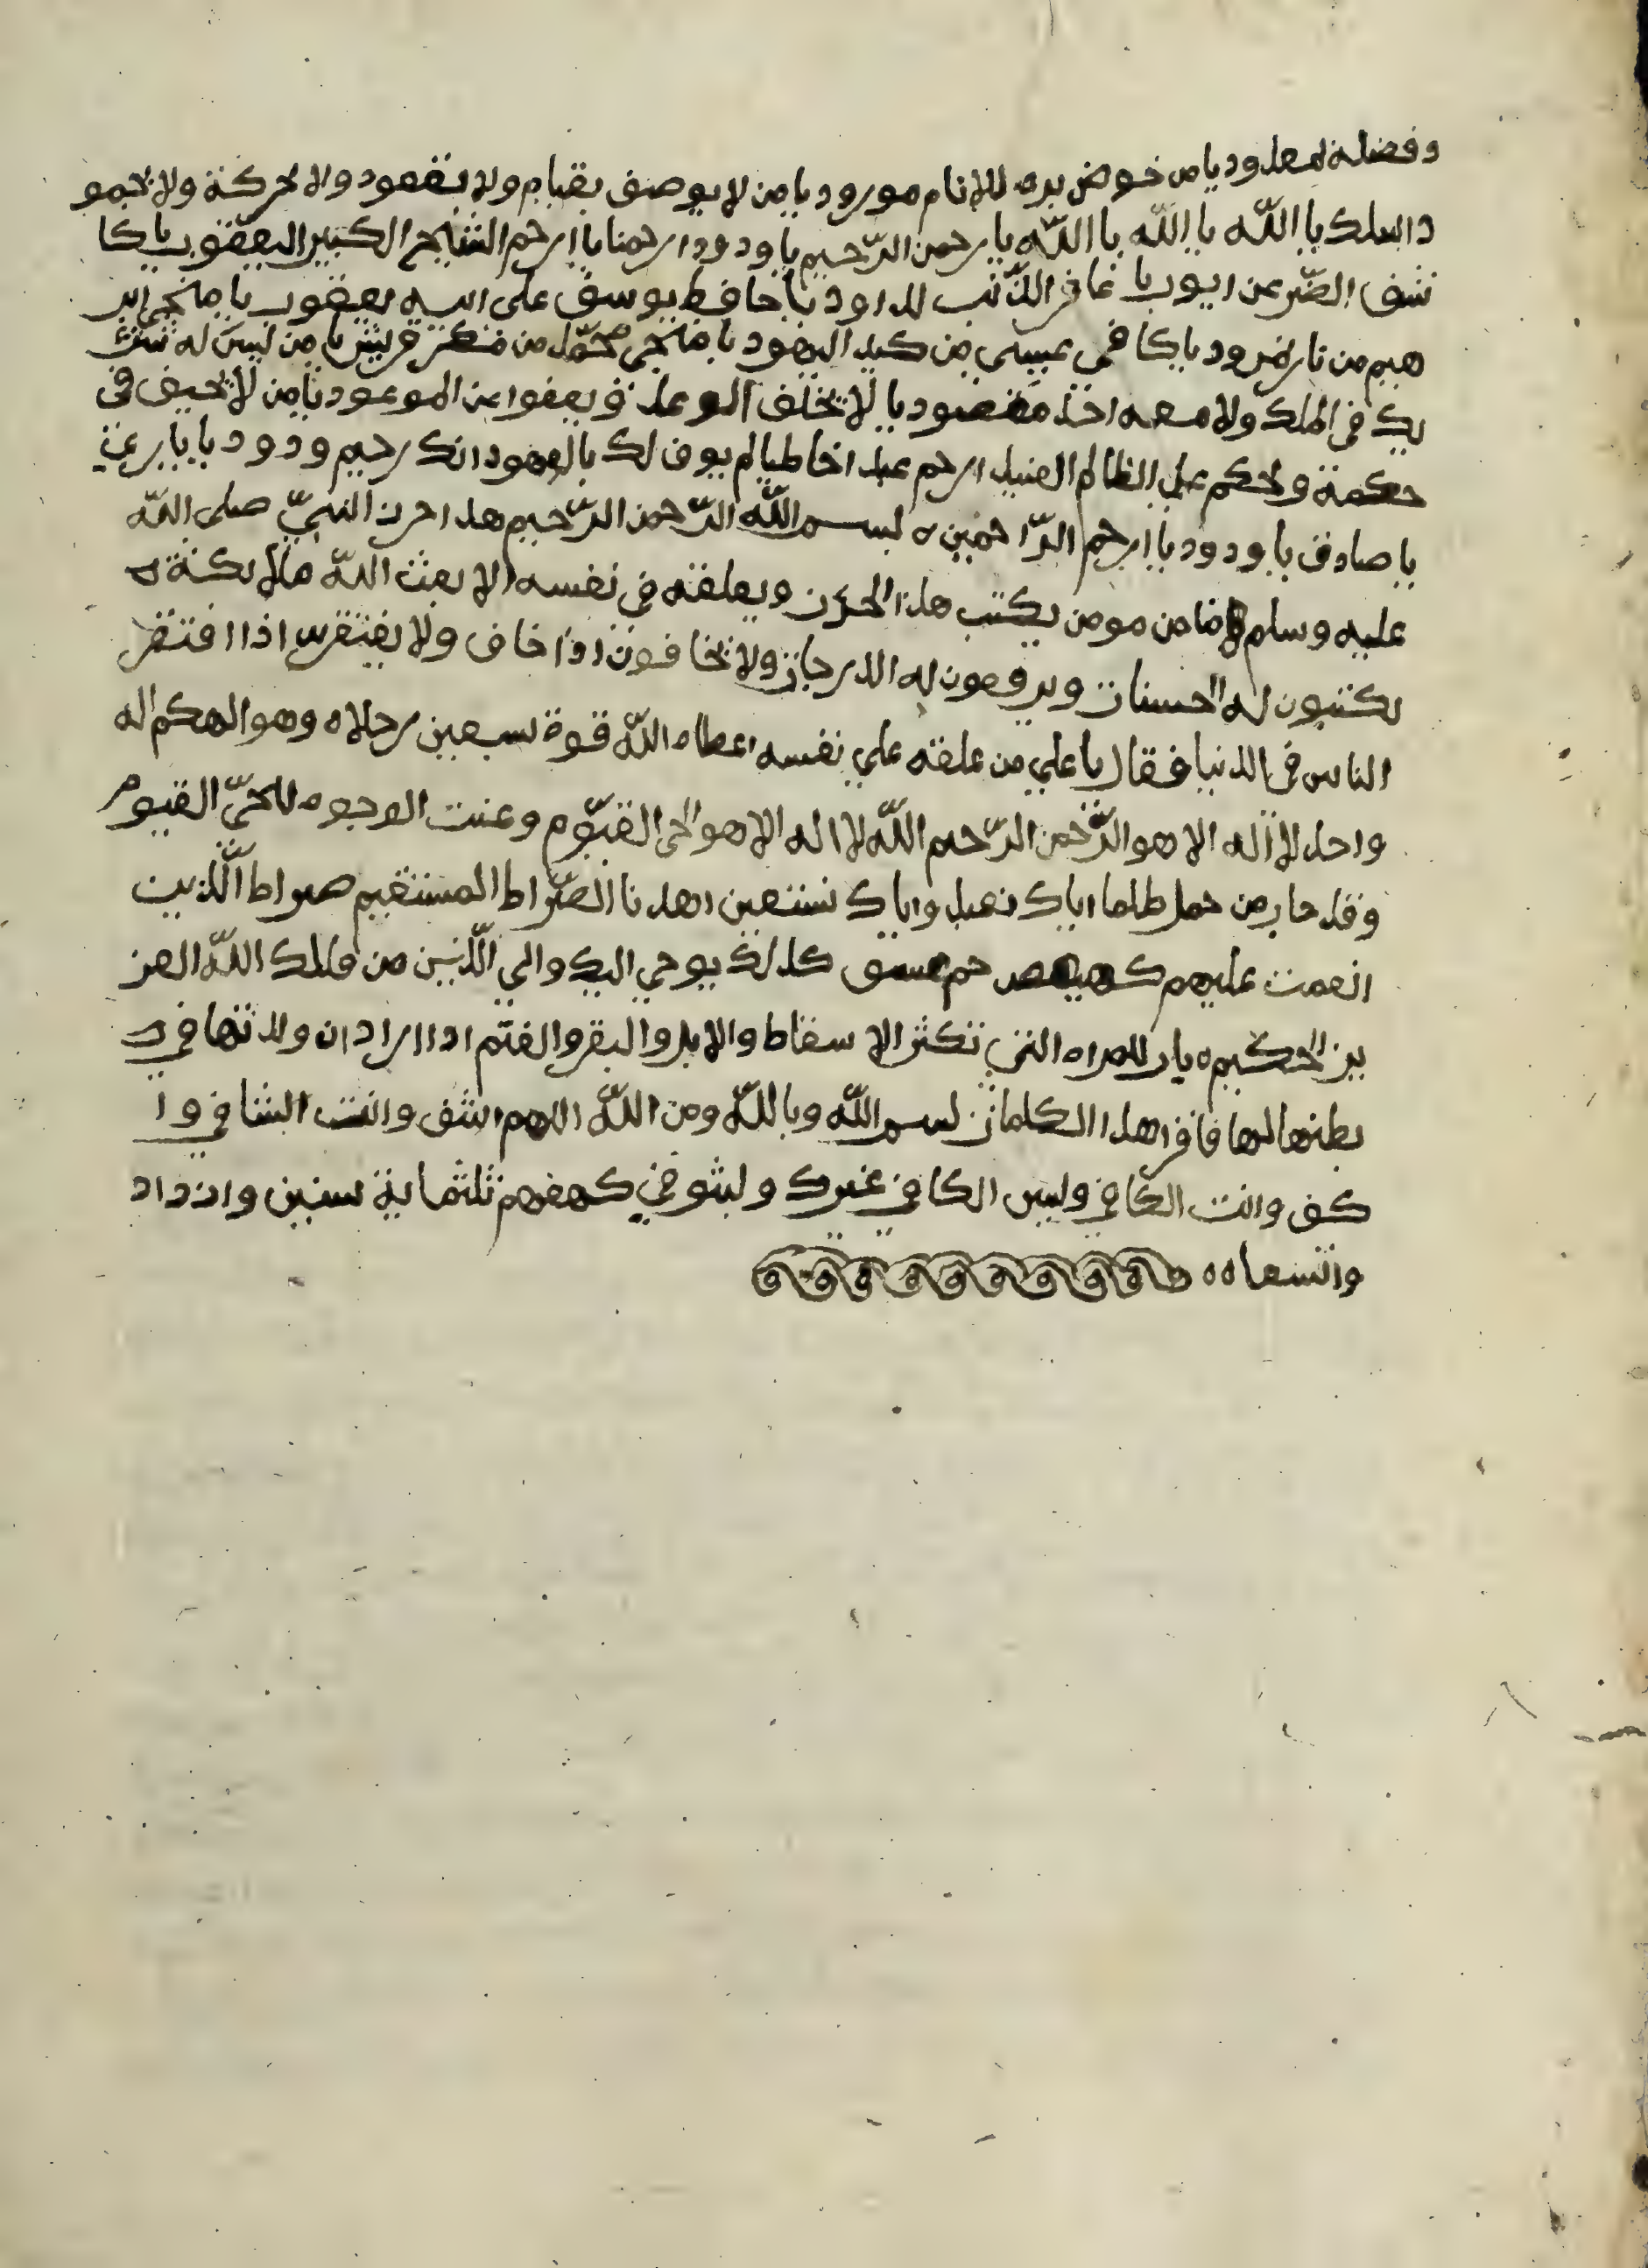 وفضله لمعدود يا من خوض بره للانام مورود يا من لا يوصف بقيام ولا بقعود ولا لحركة ولا لجمو
د اسلك يا الله يا الله يا الله يا رحمن الرّحيم يا ودود ارحمنا يا ارحم الشايخ الكبير اليعقوب يا كا
شف الضّر عن ايوب يا غافر الذّنب لداود يا حافظ يوسف على ابيه يعقوب يا منجى ابر
هيم من نار نمرود يا كافى عيسى من كيد اليهود يا منجى محمّد من مكر قريش يا من ليس له شر
يك فى الملك ولا معه احد مقصود يا لا يخلف الوعد ويعفوا عن الموعود يا من لا يحيف فى
حكمة ولحكم على الظالم العنيد ارحم عبد اخاطيا لم يوف لك بالعهود انك رحيم ودود يا بار
يا صادف يا ودود يا ارحم الرّاحمين ه بسم الله الرّحمن الرّحيم هذا حرز النبيّ صلى اللّه
عليه وسلم ما من مومن يكتب هذا الحرز ويعلقه فى نفسه الا بعث اللّه ملايكة
يكتبون له الحسنات ويرفعون له الدرجات ولا يخافون اذا خاف ولا يفتقر اذا افتقر
الناس فى الدنيا فقال يا علي من علقه علي نفسه اعطاه اللّه قوة سبعين رجلا ه وهو الهكم اله
واحد لا اله الا هو الرّحمن الرّحيم اللّه لا اله الا هو الحى القيّوم وعنت الوجوه للحىّ القيوم
وقد خاب من حمل ظلما اياك نعبد واياك نستعين اهدنا الصّراط المستقيم صراط الّذين
انعمت عليهم كهيعص حم عسق كذلك يوحي اليك والي الّذين من قبلك اللّه العز
يز الحكيم ه باب للمراه التي تكثر الاسقاط والابل والبقر والغنم اذا اراد ان ولد تها في
بطنها لها فاقرا هذا الكلمات بسم اللّه وباللّه ومن اللّه اللهم اشف وانت الشافي وا
كف وانت الكافي وليس الكافي غيرك ولبثو في كهفهم ثلثماية سنين وازداد
واتسعا ه ه